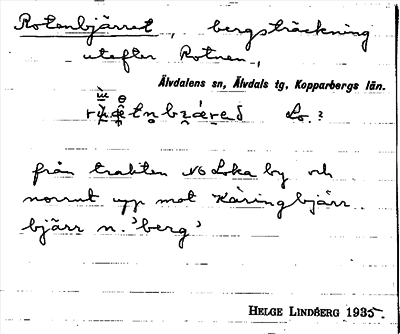 Rotenbjärret, bergsträckning
utefter Rotnen,
Älvdalens sn, Älvdals tg, Kopparbergs län.
Lo.?
från trakten NO Loka by och
norrut upp mot Käringbjärr.
bjärr n. 'berg'
HELGE LINDBERG 1935.